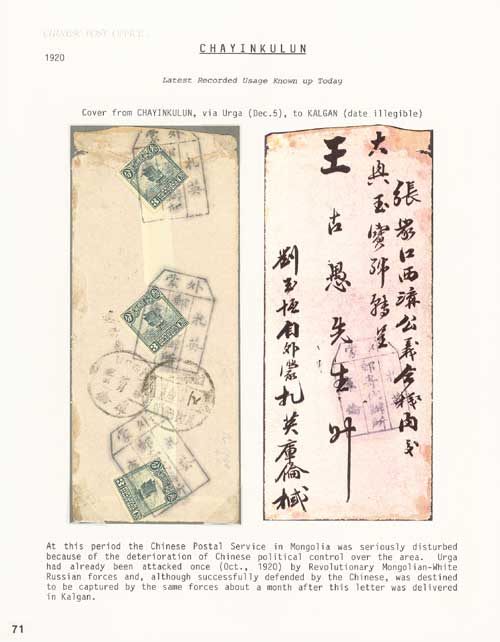 CHINESE POST OFFICE
1920
CHAYINKULUN
Latest Recorded Usage Known up Today
Cover from CHAYINKULUN, via Urga (Dec.5), to KALGAN (date illegible)
外
札英
蒙
3
外
札英
蒙
郵
3
外
札英
蒙
郵
3
張家口西溝公義合棧內交
大興玉寶號轉呈
王古愚先生升
劉玉恆自外蒙札英庫倫械
At this period the Chinese Postal Service in Mongolia was seriously disturbed
because of the deterioration of Chinese political control over the area. Urga
had already been attacked once (Oct., 1920) by Revolutionary Mongolian-White
Russian forces and, although successfully defended by the Chinese, was destined
to be captured by the same forces about a month after this letter was delivered
in Kalgan.
71